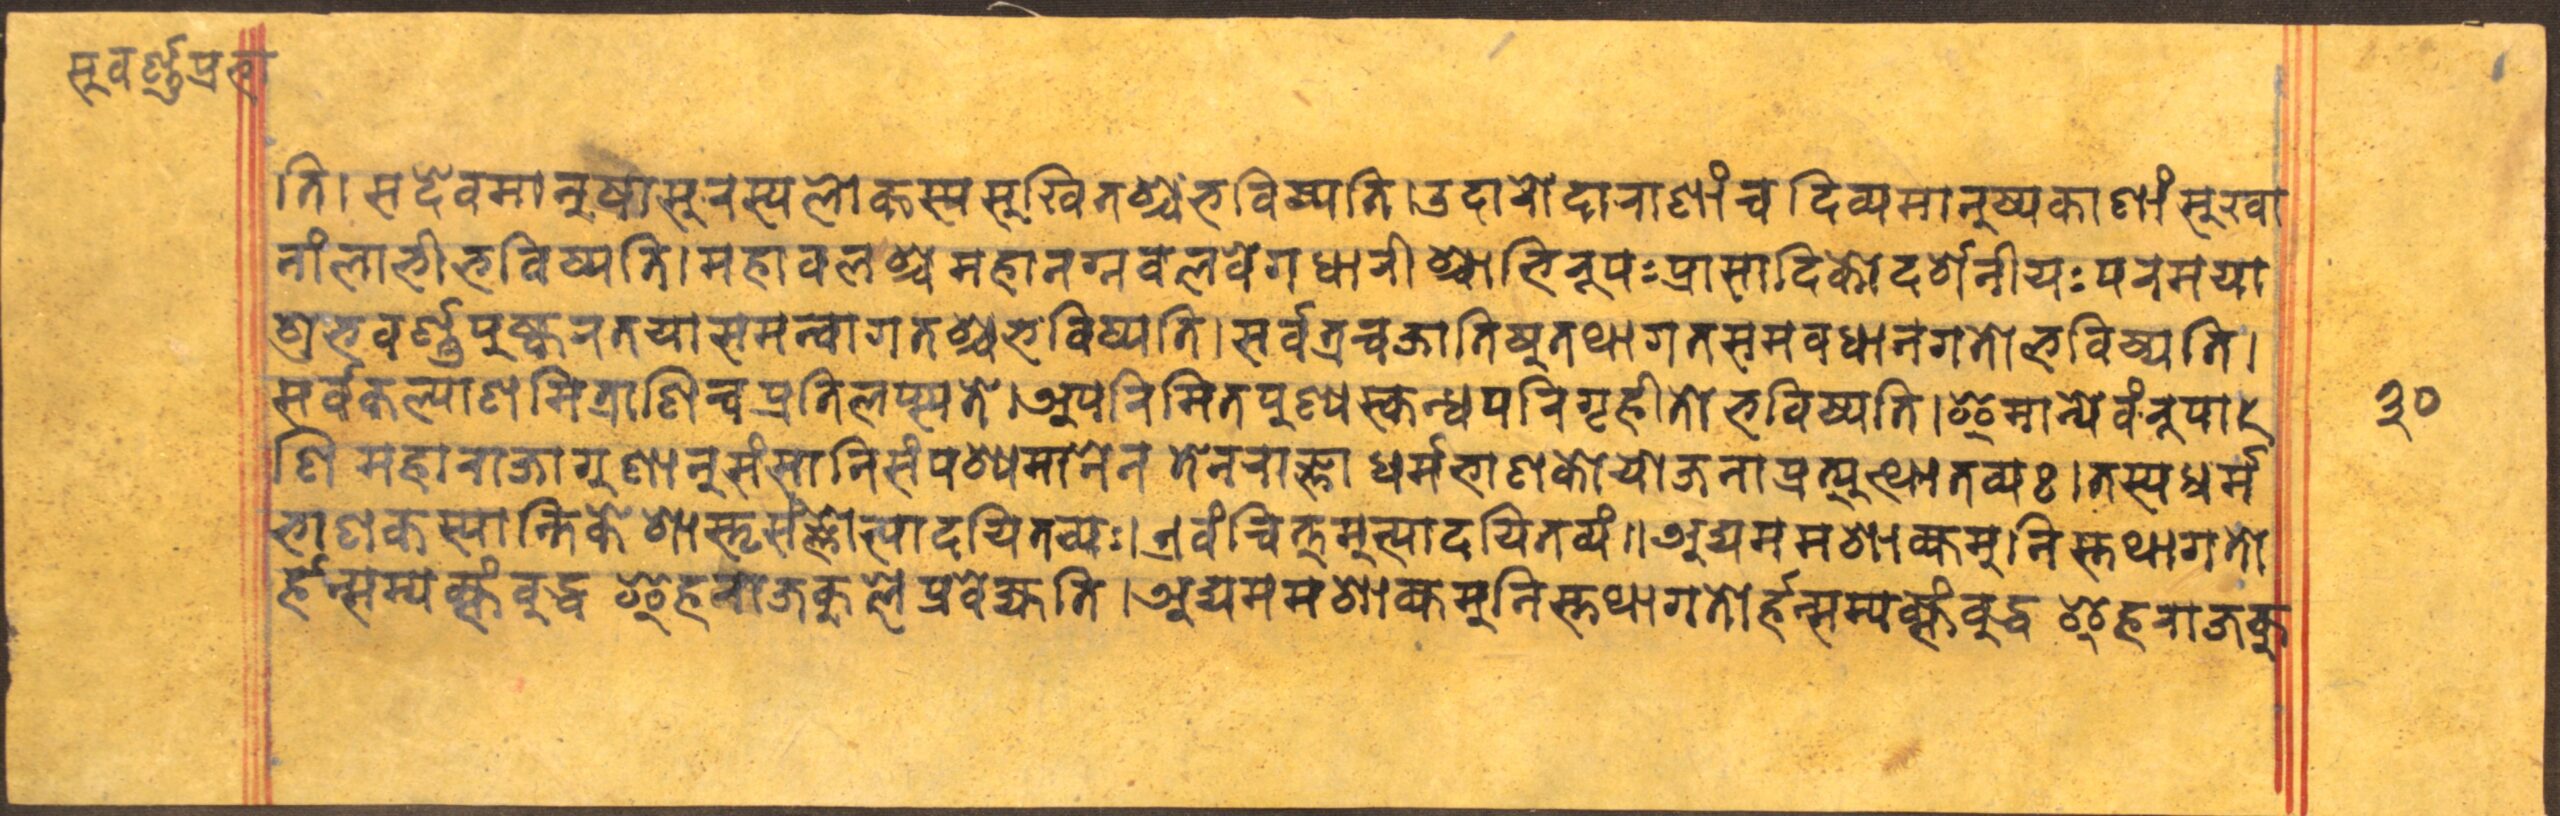 सुवर्णुप्रभा
ति। सदेवमानुषासुरस्य लोकस्य सुखितश्च भविष्यति। उदारोदाराणां च दिव्यमानुष्यकाणां सुखा
नां लाभी भविष्यति। महावलश्च महानग्नवलवेगधारी श्चाभिरूपः प्रासादिको दर्शनीयः परमया
शुभवर्णुपुष्करतया समन्वागतश्च भविष्यति। सर्वत्र च जातिषु तथागतसमवधानगतो भविष्यति।
सर्वकल्याणमित्राणि च प्रतिलप्स्यते। अपरिमितपुण्यस्कन्धपरिगृहीतो भविष्यति। इमान्येवंरूपा
णि महाराजा गुणानुसंसानि संपश्यमानेन तेन राज्ञा धर्मभाणको योजना प्रत्युत्थातव्यः। तस्य धर्म
भाणकस्यान्तिके शास्तृसंज्ञोत्पादयितव्यः। एवं चित्तमुत्पादयितव्यं॥ अद्य मम शाक्यमुनिस्तथागतो
र्हन्सम्यक्संवुद्ध इह राजकुले प्रवेक्ष्यति। अद्य मम शाक्यमुनिस्तथागतो र्हन्सम्यक्संवुद्ध इह राजकु
३०